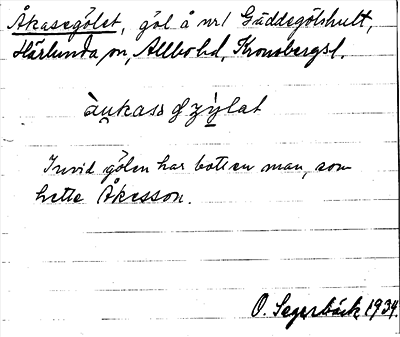 Åkasegölet, göl å nr 1 Gäddegölshult,
Härlunda sn, Allbo hd, Kronobergs l.
Invid gölen har bott en man, som
hette Åkesson.
O. Segerbäck 1934.